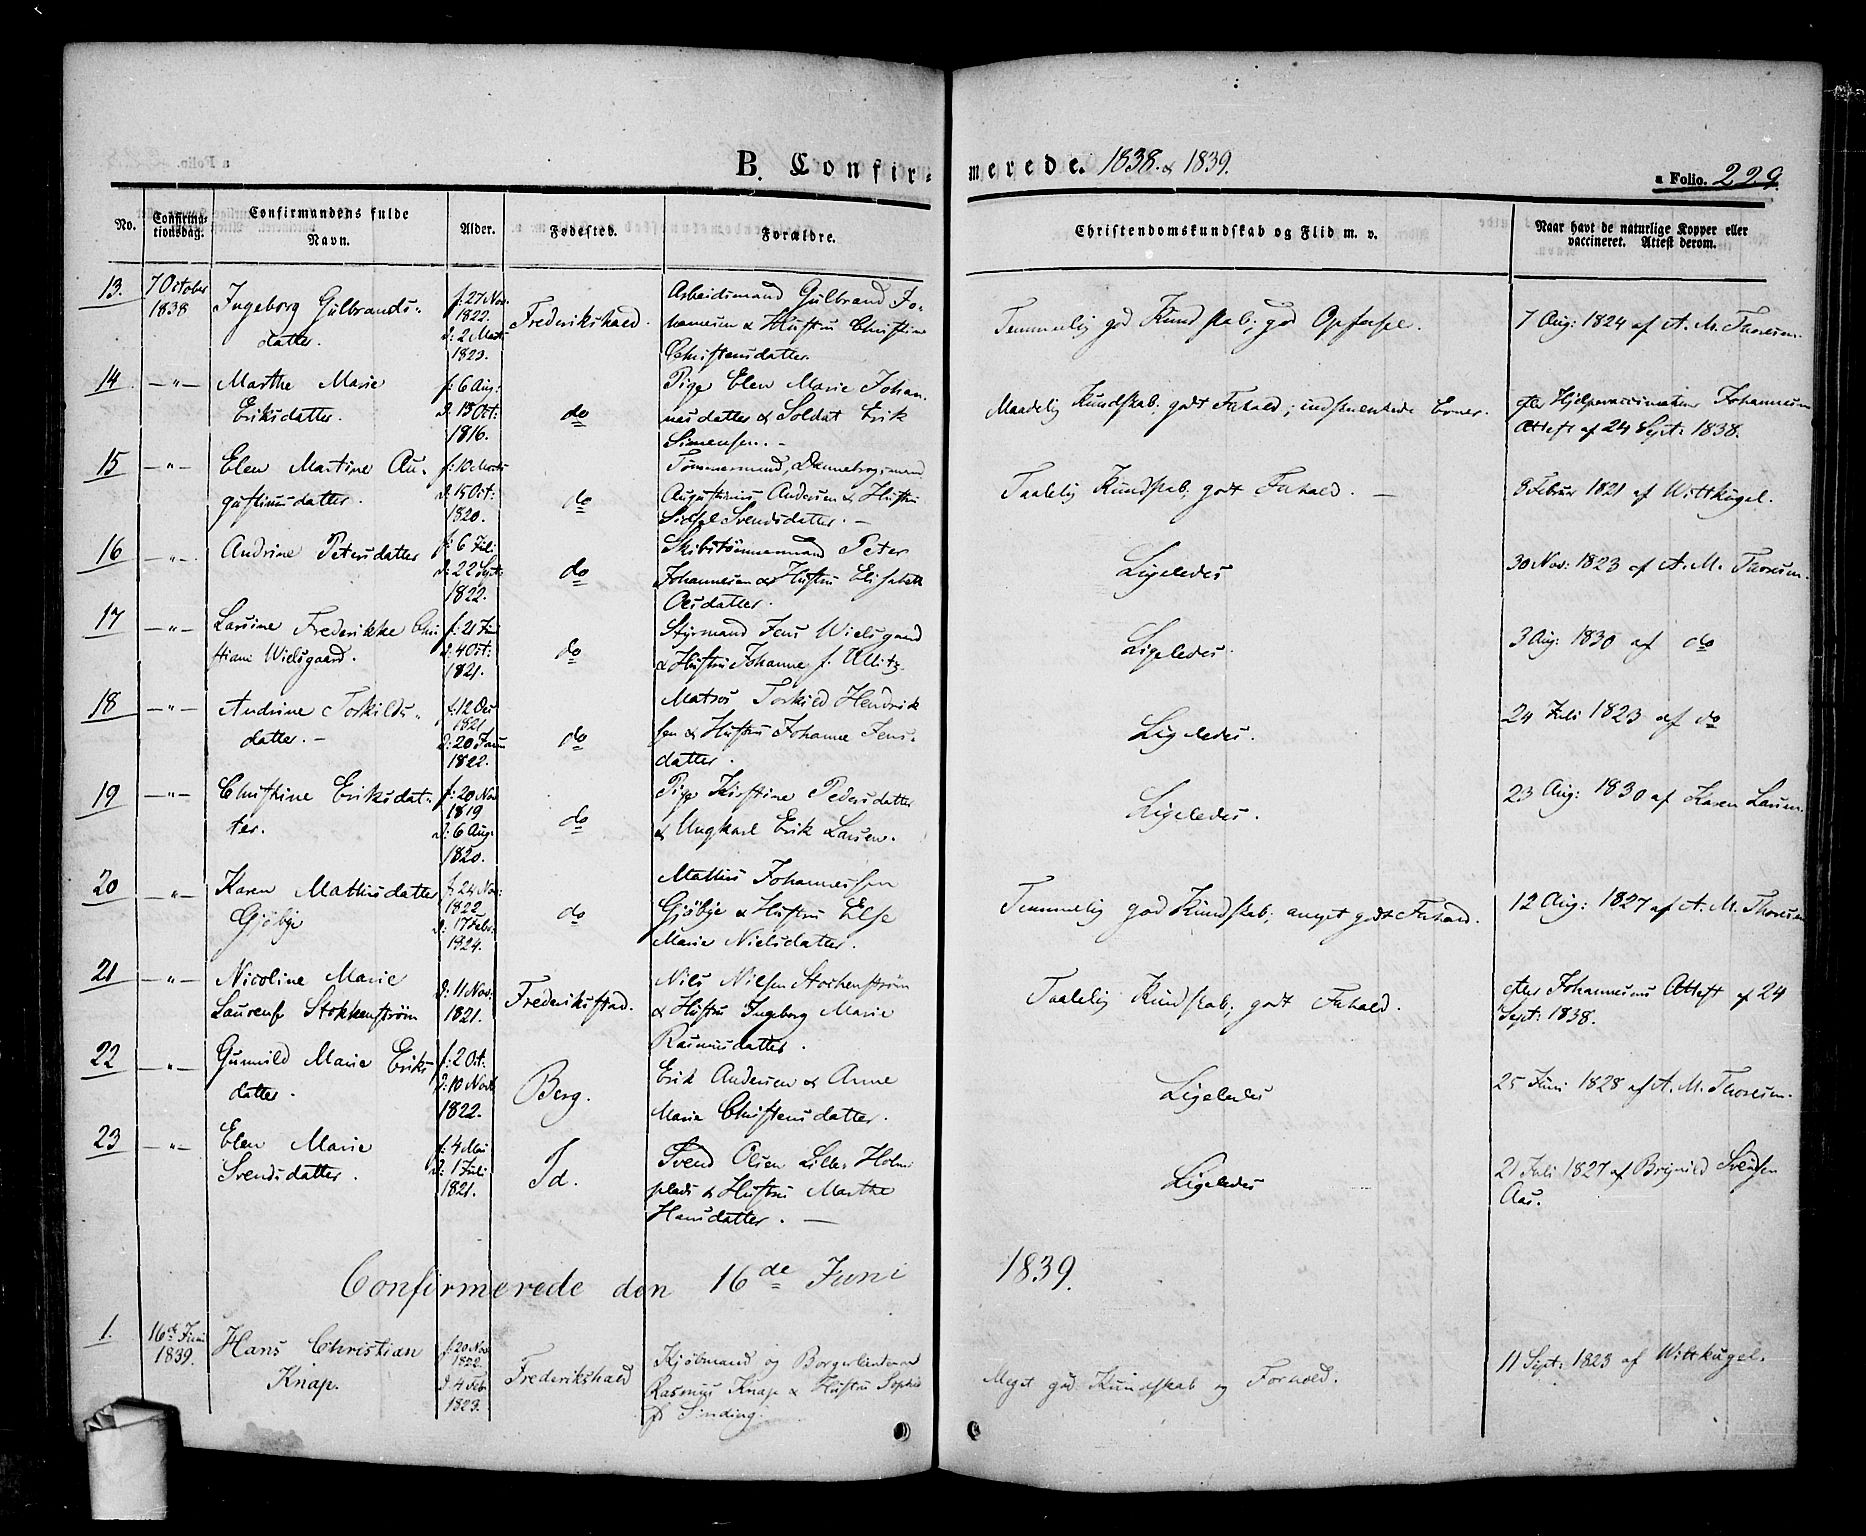 B. Confirmerede. 1838. & 1839.
a Folio. 229
No.
Confirmationsdag.
Confirmandens fulde Navn.
Alder.
Fødested.
Forældre.
Christendomskundskab og Flid m. v.
Naar havt de naturlige Kopper eller vaccineret. Attest derom.
13. 7 October 1838
Ingeborg Gulbrands-
datter.
f: 27 Nov: 1822. D: 2 1823.
Frederikshald.
Arbeidsmand Gulbrand Jo-
hannesen & Hustru Christine
Christensdatter.
Temmelig god Kundskab; god Opførsel.
7 Aug: 1824 af A. M. Thoresen.
14 —"—
Marthe Marie
Eriksdatter.
f: 6 Aug: D: 13 Oct: 1816.
do
Pige Elen Marie Johan-
nesdatter & Soldat Erik
Simensen. —
Maadelig Kundskab, godt Forhold; indskrænkede Evner.
efter Hjelpevaccinateur Johannesens
Attest af 24 Sept: 1838.
15 —"—
Elen Martine Au-
gustinusdatter.
f: 10 Marts D: 15 Oct: 1820.
do
Tømmermand, Dannebrogsmand
Augustinus Andersen & Hustru
Sidsel Svendsdatter. —
Taalelig Kundskab, godt Forhold. —
8 Februar 1821 af Wittkugel.
16 —"—
Andrine Petersdatter
f: 6 Juli D: 22 Sept: 1822.
do
Skibstømmermand Peter
Johannesen & Hustru Elisabeth
Olesdatter.
Ligeledes
30 Nov: 1823 af A. M. Thoresen.
17 —"—
Larsine Frederikke Chri
stiane Wielsgaard.
f: 21 D: 4 Oct: 1821.
do
Styrmand Jens Wielsgaard
& Hustru Johanne f. Ullitz.
Ligeledes.
3 Aug: 1830 af do
18 —"—
Andrine Torkilds-
datter. —
f: 12 Dec 1821. D: 20 Januar 1822.
do
Matros Torkild Hendrik
sen & Hustru Johanne Jens-
datter.
Ligeledes.
24 Juli 1823 af do
19 —"—
Christine Eriksdat-
ter.
f: 20 Nov 1819 D: 6 Aug. 1820.
do
Pige Kirstine Pedersdatter
& Ungkarl Erik Larsen.
Ligeledes.
23 Aug: 1830 af Karen Larsen.
20 —"—
Karen Mathisdatter
Gjøbye
f: 24 Nov: 1822 D: 17 Febr: 1824.
do
Mathis Johannessen
Gjøbye & Hustru Else
Marie Nielsdatter.
Temmelig god Kundskab; meget godt Forhold.
12 Aug: 1827 af A. M. Thoresen
21 —"—
Nicoline Marie
Laurense Stokkenstrøm
D: 11 Nov: 1821.
Frederikstad.
Nils Nielsen Stochenstrøm
& Hustru Ingeborg Marie
Rasmusdatter.
Taalelig Kundskab; godt Forhold.
efter Johannesens Attest af 24
Sept: 1838.
22 —"—
Gunnild Marie Eriks-
datter.
f: 2 Oct: D: 10 Novb 1822.
Berg.
Erik Andersen & Anne
Marie Christensdatter.
Ligeledes
25 Juni 1828 af A. M. Thoresen.
23 —"—
Elen Marie
Svendsdatter.
f: 4 Mai D: 1 Juli 1821.
Id.
Svend Olsen Lille Holm
plads & Hustru Marthe
Hansdatter. —
Ligeledes
21 Juli 1827 af Svendsen
Aas.
Confirmerede den 16de Juni 1839.
1. 16de Juni 1839.
Hans Christian
Knap.
f: 20 Nov 1822. D: 4 Feb. 1823.
Frederikshald
Kjøbmand og
Rasmus Knap & Hustru Sophie
f. Sinding.
Meget god Kundskab og Forhold.
11 Sept: 1823 af Wittkugel.